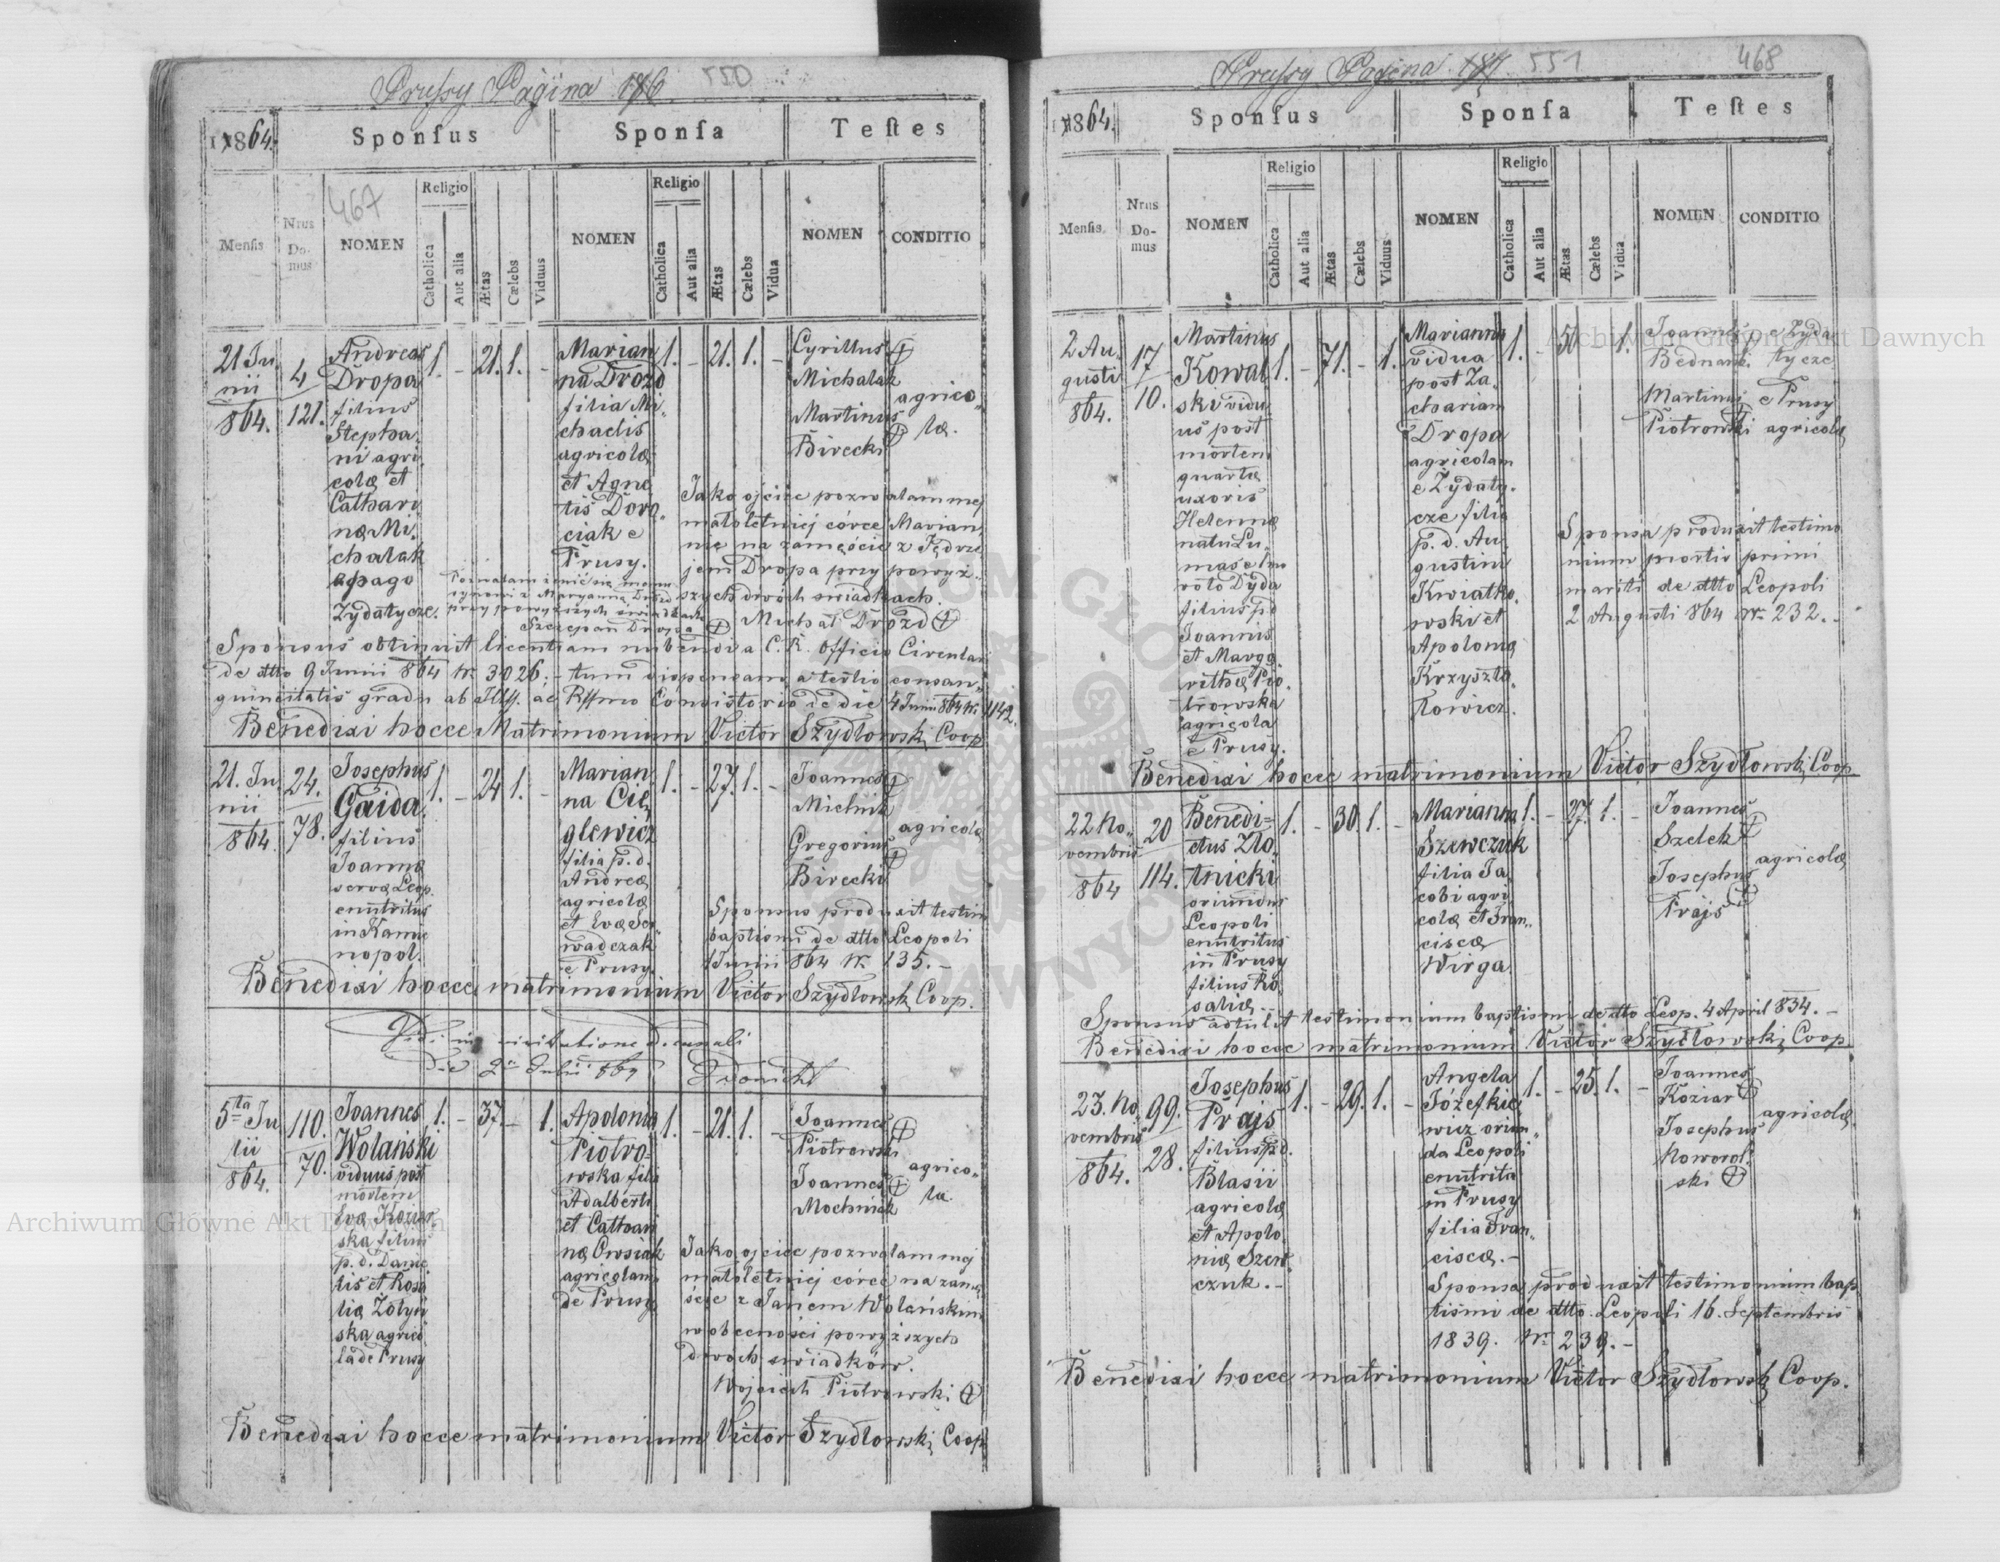 Prussy Pagina 186. 550
1864.
Sponsus
Sponsa
Testes
Mensis
Nrus Do-mus
467
NOMEN
Religio
Catholica
Aut alia
Ætas
Cælebs
Viduus
NOMEN
Religio
Catholica
Aut alia
Ætas
Cælebs
Vidua
NOMEN
CONDITIO
21 Ju-
nii
864.
4
121.
Andreas
Dropa
filius
Stepha-
ni agri-
colæ et
Cathari
næ Mi-
chalak
e pago
Zydatycze.
1. - 21. 1. -
Marian
na Drozd
filia Mi-
chaelis
agricolæ
et Agne
tis Doro-
ciak e
Prusy.
1. - 21. 1. -
Cyrillus
Michalak
Martinus
Birecki
agrico-
læ.
Jako ojciec pozwalam mej
małoletniej córce Marian-
nie na zamęście z Jędrze
jem Dropa przy powyż-
szych dwóch świadkach.
Michał Drozd
Pozwalam żenić się memu
synowi z Maryanną Drozd
przy powyższych świadkach
Szczepan Dropa
Sponsus obtinuit licentiam nubendi a C. R. Officio Circulari
de dtto 9 Junii 864 Nr. 3026. - tum dispensam a tertio consan-
guineitatis gradu ab Illss. ac Rssmo Consistorio de die 4 Junii 864 Nr. 1142.
Benedixi hocce Matrimonium Victor Szydłowski Coop
21. Ju-
nii
864.
24.
78.
Josephus
Gaida
filius
Joannæ
servæ Leop.
enutritus
in Kamie
nopol.
1. - 24 1. -
Marian
na Cie
glewicz
filia p. d.
Andreæ
agricolæ
et Evæ Ser-
wadczak
e Prusy.
1. - 27. 1. -
Joannes
Mielnik
Gregorius
Birecki
agricolæ
Sponsus produxit testim
baptismi de dtto Leopoli
1 Junii 864 Nr. 135. -
Benedixi hocce matrimonium Victor Szydłowski Coop.
5ta Ju
lii
864.
110.
70.
Joannes
Wolański
viduus post
mortem
Evæ Koziar-
ska filius
p. d. Danie-
lis et Rosa
liæ Zołyń
ska agrico
la de Prusy
1. - 37. - 1.
Apolonia
Piotro-
wska filia
Adalberti
et Cathari
næ Owsiak
agricolam
de Prusy
1. - 21. 1. -
Joannes
Piotrowski
Joannes
Mochniak
agrico-
læ.
Jako ojciec pozwalam mej
małoletniej córce na zamę
ście z Janem Wolańskim
w obecności powyższych
dwóch świadków.
Wojciech Piotrowski
Benedixi hocce matrimonium Victor Szydłowski Coop
Prussy Pagina 187. 551
468
1864.
Sponsus
Sponsa
Testes
Mensis
Nrus Do-mus
NOMEN
Religio
Catholica
Aut alia
Ætas
Cælebs
Viduus
NOMEN
Religio
Catholica
Aut alia
Ætas
Cælebs
Vidua
NOMEN
CONDITIO
2 Au-
gusti
864.
17
10.
Martinus
Kowal-
ski vidu-
us post
mortem
quartæ
uxoris
Helennæ
natu Lu-
mas e 1mo
voto Dyda
filius p. d.
Joannis
et Marga
rithæ Pio-
trowska
agricola
e Prusy.
1. - 71. - 1.
Marianna
vidua
post Za-
chariam
Dropa
agricolam
e Zydaty-
cze filia
p. d. Au-
gustini
Kwiatko-
wski et
Apoloniæ
Krzyszto-
kowicz.
1. - 50 - 1.
Joannes
Bednarski
Martinus
Piotrowski
e Zyda
tycze
e Prusy
agricolæ
Sponsa produxit testimo
nium mortis primi
mariti de dtto Leopoli
2 Augusti 864 Nr. 232. -
Benedixi hocce matrimonium Victor Szydłowski Coop
22 No-
vembris
864
20
114.
Benedi-
ctus Zło-
tnicki
oriundus
Leopoli
enutritus
in Prusy
filius Ro-
saliæ.
1. - 30. 1. -
Marianna
Szewczuk
filia Ja-
cobi agri
colæ et Fran-
ciscæ
Wirga.
1. - 27. 1. -
Joannes
Szelek
Josephus
Prajs
agricolæ
Sponsus adtulit testimonium baptismi de dtto Leop. 4 April 834. -
Benedixi hocce matrimonium Victor Szydłowski Coop
23. No-
vembris
864.
99.
28.
Josephus
Prajs
filius p. d.
Blasii
agricolæ
et Apolo-
niæ Szew-
czuk. -
1. - 29. 1. -
Angela
Józefkie
wicz oriun-
da Leopoli
enutrita
in Prusy
filia Fran-
ciscæ. -
1. - 25. 1. -
Joannes
Koziar
Josephus
Noworol-
ski
agricolæ.
Sponsa produxit testimonium bap
tismi de dtto. Leopoli 16. Septembris
1839. Nr. 239. -
Benedixi hocce matrimonium Victor Szydłowski Coop.
Archiwum Główne Akt Dawnych
Archiwum Główne Akt Dawnych